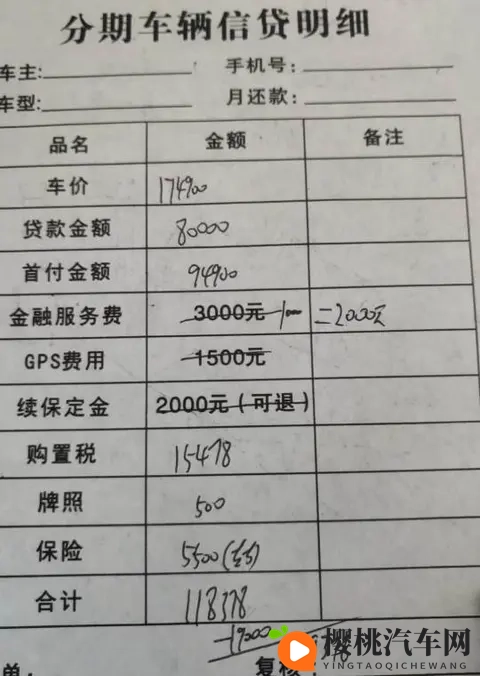 分期车辆信贷明细
车主: 手机号:
车型: 月还款:
品名 金额 备注
车价 174900
贷款金额 80000
首付金额 94900
金融服务费 3000元 =2000元
GPS费用 1500元
续保定金 2000元(可退)
购置税 15478
牌照 500
保险 5500
合计 118378
-19000
单: 复核:
樱桃汽车网
YINGTAOQICHEWANG